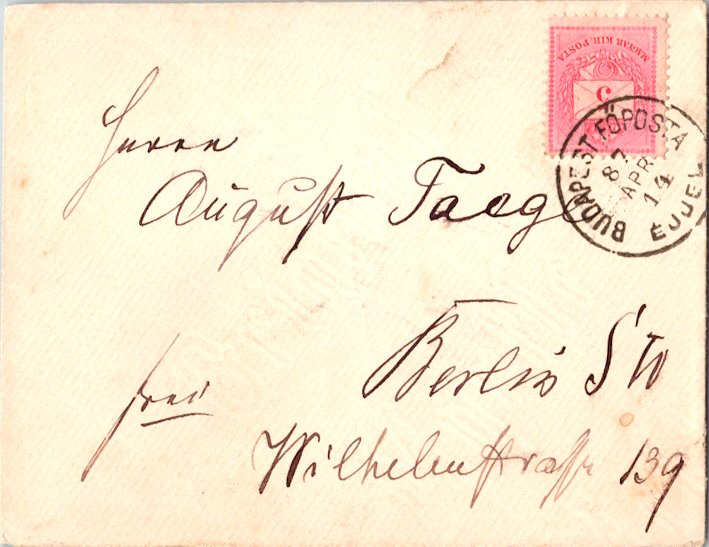 MAGYAR KIR. POSTA
5
BUDAPEST FŐPOSTA
87
APR
14
ÉJJEL
Herrn
August Taege
Berlin SW
frei
Wilhelmstrasse 139